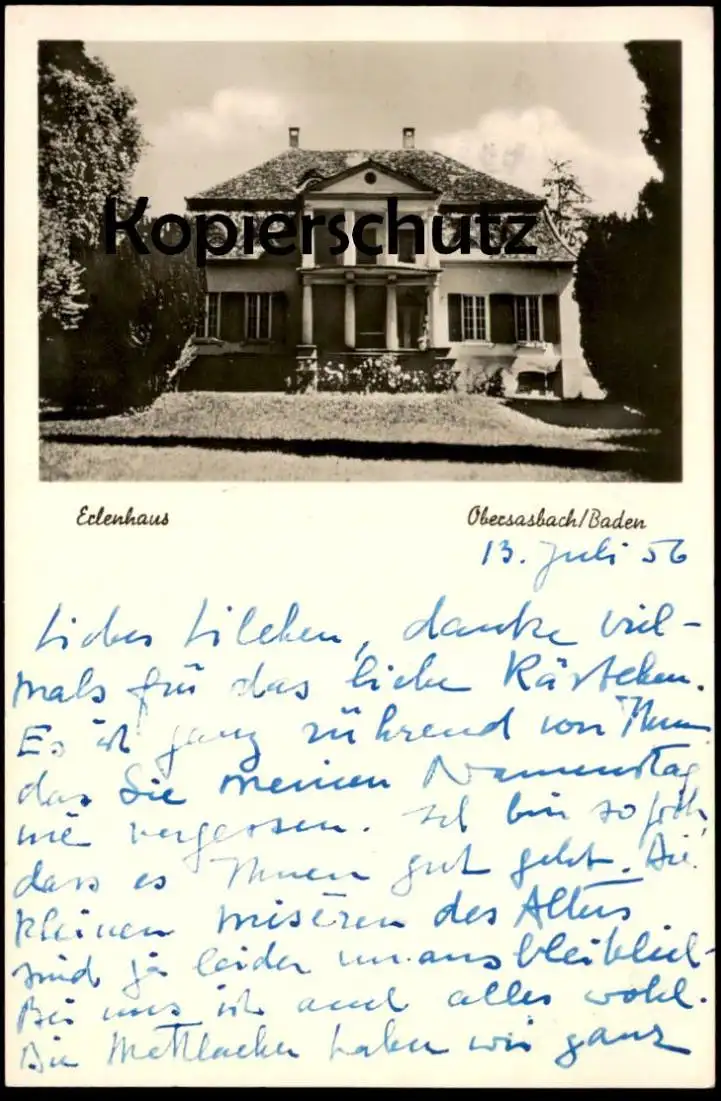 Kopierschutz
Erlenhaus
Obersasbach/Baden
13. Juli 56
Liebes Lilchen, danke viel-
mals für das liebe Kärtchen.
Es ist ganz rührend von Ihnen
das Sie meinen Namenstag
nie vergessen. Ich bin so froh,
dass es Ihnen gut geht. Die
kleinen misèren des Alters
sind ja leider unausbleiblich.
Bei uns ist auch alles wohl.
Die Mettlacher haben wir ganz